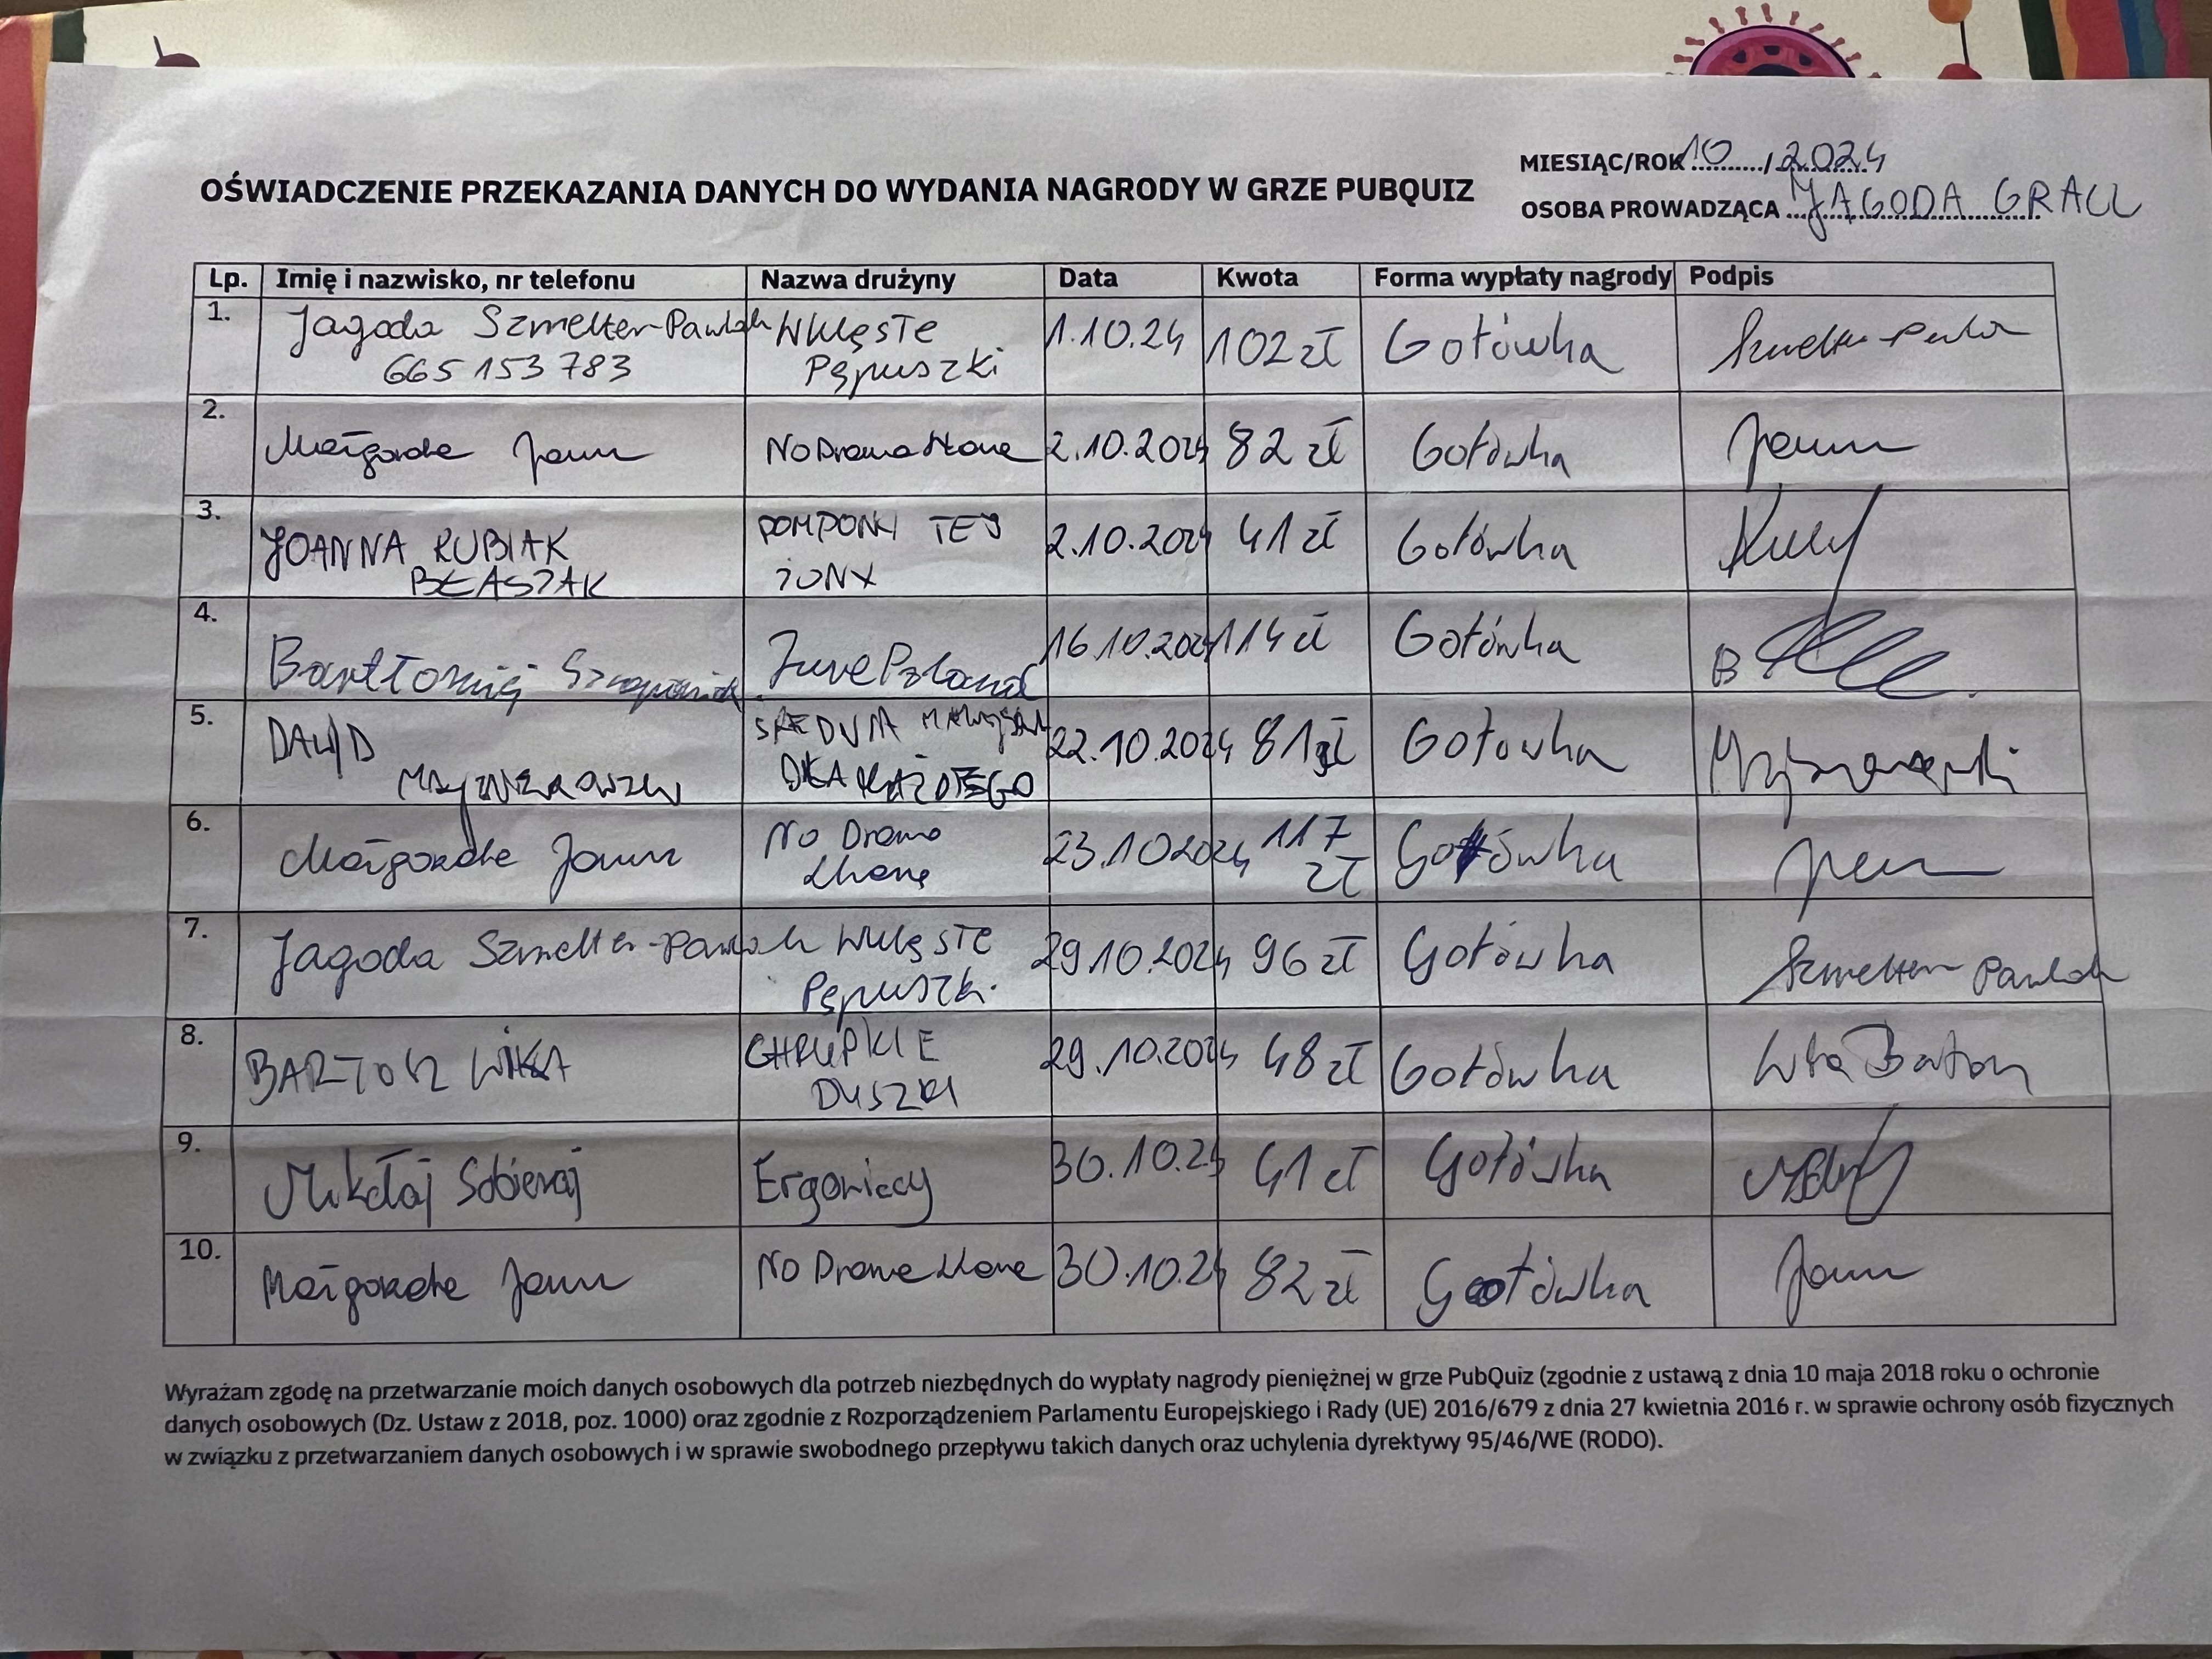 MIESIĄC/ROK 10 / 2024
OŚWIADCZENIE PRZEKAZANIA DANYCH DO WYDANIA NAGRODY W GRZE PUBQUIZ
OSOBA PROWADZĄCA JAGODA
Lp. Imię i nazwisko, nr telefonu Nazwa drużyny Data Kwota Forma wypłaty nagrody Podpis
1. Jagoda Szmelter-Pawlak Wklęste 1.10.24 102 zł Gotówka
665 153 783 Pępuszki
2. Małgorzata No Drama Llama 2.10.2024 82 zł Gotówka
3. JOANNA RUBIAK POMPONY TEJ 2.10.2024 41 zł Gotówka
BŁASZAK
4. Bartłomiej 16.10.2024 114 zł Gotówka
5. DAWID 22.10.2024 81 zł Gotówka
DLA KAŻDEGO
6. Małgorzata No Drama 23.10.2024 117 Gotówka
Llama zł
7. Jagoda Szmelter-Pawlak Wklęste 29.10.2024 96 zł Gotówka Szmelter Pawlak
Pępuszki
8. BARTOSZ WIKA CHRUPKIE 29.10.2024 48 zł Gotówka
DUSZKI
9. Mikołaj Sobieraj 30.10.24 41 zł Gotówka
10. Małgorzata No Drama Llama 30.10.24 82 zł Gotówka
Wyrażam zgodę na przetwarzanie moich danych osobowych dla potrzeb niezbędnych do wypłaty nagrody pieniężnej w grze PubQuiz (zgodnie z ustawą z dnia 10 maja 2018 roku o ochronie
danych osobowych (Dz. Ustaw z 2018, poz. 1000) oraz zgodnie z Rozporządzeniem Parlamentu Europejskiego i Rady (UE) 2016/679 z dnia 27 kwietnia 2016 r. w sprawie ochrony osób fizycznych
w związku z przetwarzaniem danych osobowych i w sprawie swobodnego przepływu takich danych oraz uchylenia dyrektywy 95/46/WE (RODO).